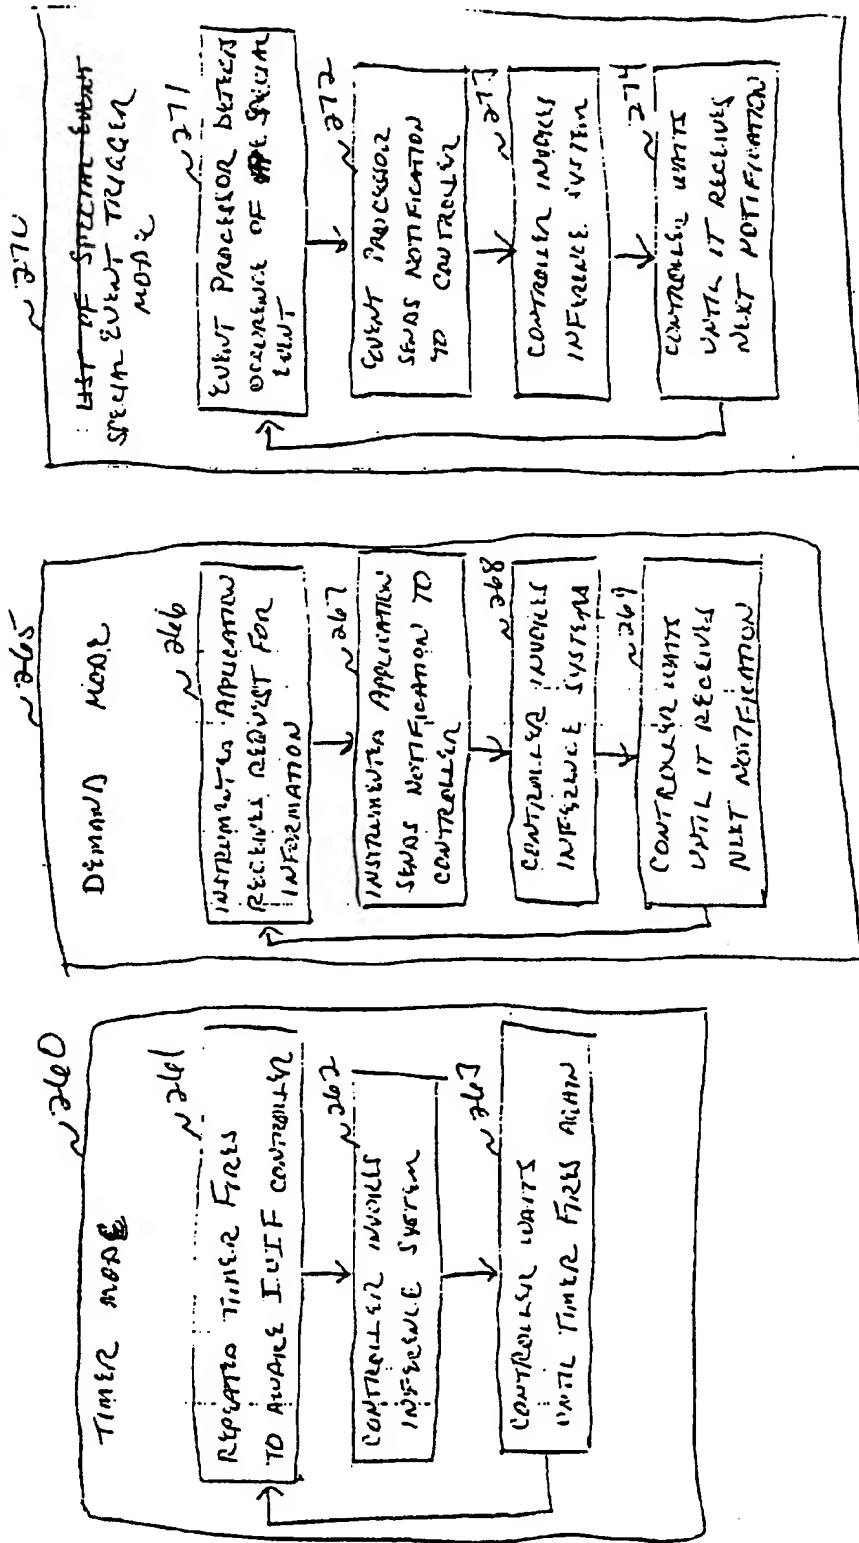 ~260
TIMER MODE
~261
REPEATED TIMER FIRES
TO AWARE IUIF CONTROLLER
~262
CONTROLLER INVOKES
INFERENCE SYSTEM
~263
CONTROLLER WAITS
UNTIL TIMER FIRES AGAIN
~265
DEMAND MODE
~266
INSTRUMENTED APPLICATION
RECEIVES REQUEST FOR
INFORMATION
~267
INSTRUMENTED APPLICATION
SENDS NOTIFICATION TO
CONTROLLER
~268
CONTROLLER INVOKES
INFERENCE SYSTEMS
~269
CONTROLLER WAITS
UNTIL IT RECEIVES
NEXT NOTIFICATION
~270
LIST OF SPECIAL EVENT
SPECIAL EVENT TRIGGER
MODE
~271
EVENT PROCESSOR DETECTS
OCCURENCE OF SPECIAL
EVENT
~272
EVENT PROCESSOR
SENDS NOTIFICATION
TO CONTROLLER
~273
CONTROLLER INVOKES
INFERENCE SYSTEM
~274
CONTROLLER WAITS
UNTIL IT RECEIVES
NEXT NOTIFICATION